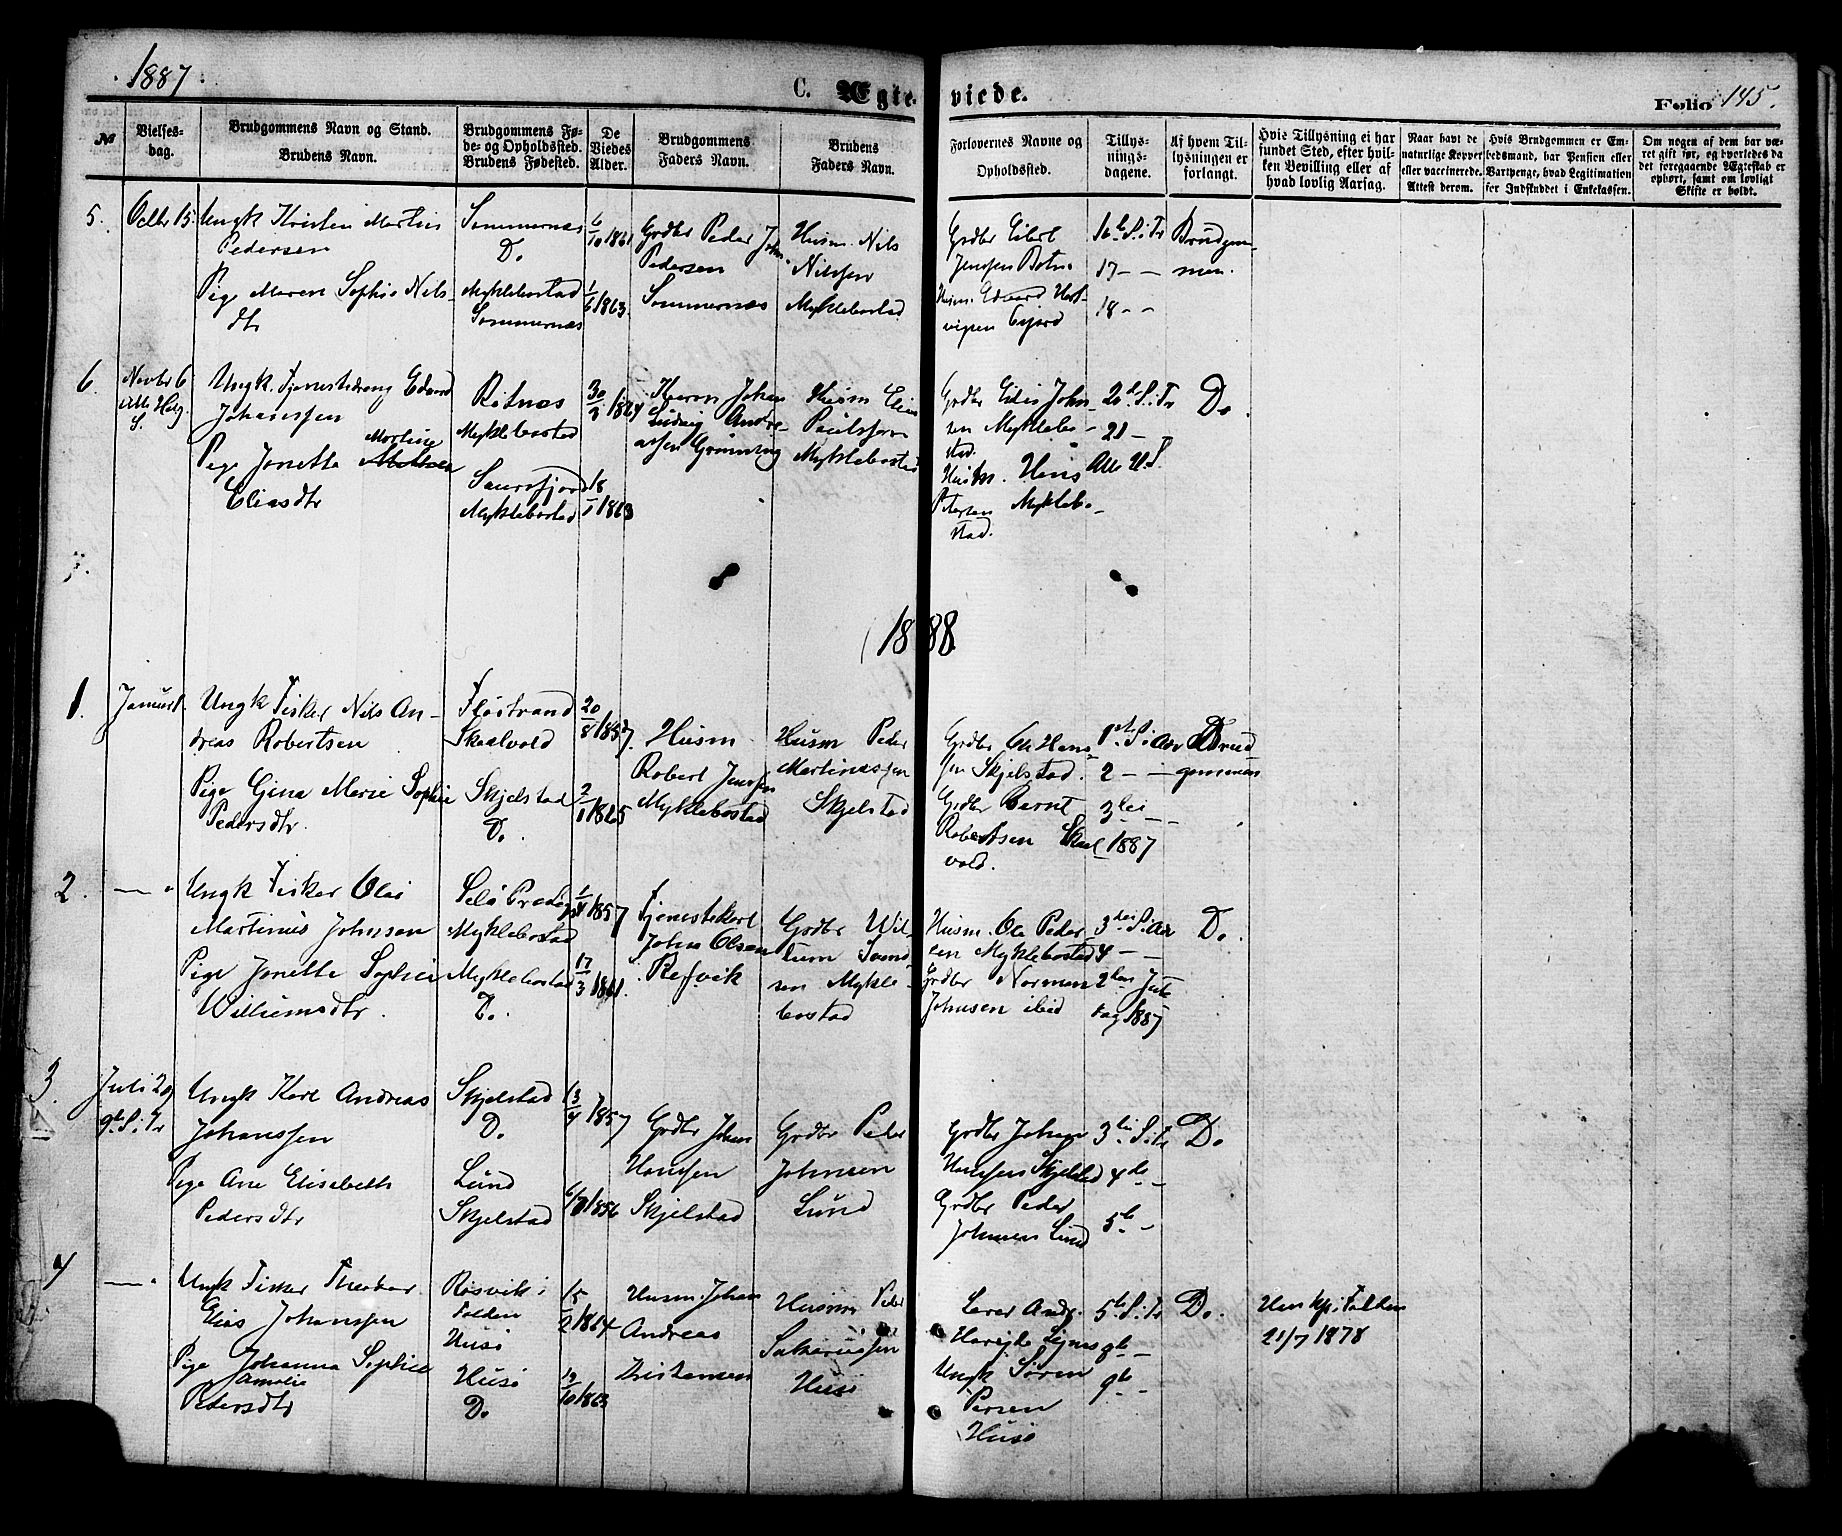 1887
C. Ægteviede.
Folio 145.
№
Vielses-
dag.
Brudgommens Navn og Stand.
Brudens Navn.
Brudgommens Fø-
de- og Opholdssted.
Brudens Fødested.
De
Viedes
Alder.
Brudgommens
Faders Navn.
Brudens
Faders Navn.
Forlovernes Navne og
Opholdssted.
Tillys-
nings-
dagene.
Af hvem Til-
lysningen er
forlangt.
Hvis Tillysning ei har
fundet Sted, efter hvil-
ken Bevilling eller af
hvad lovlig Aarsag.
Naar havt de
naturlige Kopper
eller vaccinerede.
Attest derom.
Hvis Brudgommen er Em-
bedsmand, har Pension eller
Vartpenge, hvad Legitimation
for Indskuddet i Enkekassen.
Om nogen af dem har væ-
ret gift før, og hvorledes da
det foregaaende Ægteskab er
ophørt, samt om lovligt
Skifte er holdt.
5.
Octbr 15.
Ungk Kristen Martin
Pedersen
Pige Maren Sophie Nils-
dtr
Sommernæs
Do
Myklebostad
Sommernæs
6/10 1861
1/6 1863
Grdbr Peder Johan
Pedersen
Sommernæs
Husm. Nils
Nilssen
Myklebostad
Grdbr Eilert
Jenssen Botn
Husm. Edvard Hart-
vigsen
16de S. i Tr
17 — —
18 — —
Brudgom-
men.
6
Novbr 6
Alle Helg.
S.
Ungk. Tjenestedreng Edvard
Johanssen
Pige Jonette Martine
Eliasdtr
Røtnæs
Myklebostad
Saursfjord
Myklebostad
18/1 1863
Johan
Ludvig Andre-
assen Grønning
Husm Elias
Paulssen
Myklebostad
Grdbr Edis John-
sen Myklebo-
stad.
Husm. Hans
Petersen Mykleb-
stad.
20de S. i Tr
21 —
Alle H. S.
Do.
7.
1888
1.
Januar 1.
Ungk Fisker Nils An-
dreas Robertsen
Pige Gjina Marie Sophie
Pedersdtr.
Flostrand
Skaalvold
Skjelstad
Do.
20/8 1857.
2/1 1865
Husm
Robert Jenssen
Myklebostad
Husm Peder
Martinussen
Skjelstad
Grdbr Ole Hans-
sen Skjelstad.
Grdbr Bernt
Robertsen Skaal-
vold.
1ste S. i Adv
2 — —
3die — —
1887
Brud
gommen
2.
— "
Ungk Fisker Olai
Martinus Johnsen
Pige Jonette Sophie
Williumsdtr.
Myklebostad
Myklebostad
Do.
1/4 1857
17/3 1861.
Tjenestekarl
John Olsen
Refsvik
Grdbr Wil-
lium
sen Mykle-
bostad
Husm. Ole Peder-
sen Myklebostad
Grdbr Normen
Johnsen ibid
3die S. i Adv
4 — —
2den Jule
dag 1887
Do.
3
Juli 29
9de S. i Tr
Ungk Karl Andreas
Johanssen
Pige Ane Elisabeth
Pedersdtr
Skjelstad
Do.
Lund
Skjelstad
13/4 1857
1856
Grdbr Johan
Hanssen
Skjelstad
Grdbr Peder
Johnsen
Lund
Grdbr Johan
Hanssen Skjelstad
Grdbr Peder
Johnsen Lund
3die S. i Tr
4de —
5te —
Do.
4
— "
Ungk Fisker Theodor
Elias Johanssen
Pige Johanna Sophie
Amalie
Pedersdtr
Røsvik i
Folden
Husø
Husø
Do.
15/2 1864
19/10 1863
Husm. Johan
Andreas
Kristensen
Husm Peder
Sakariassen
Husø
Lærer Andr.
Ungk Søren
Persen
Husø
5te S. i Tr
8de —
9de —
Do.
Folden
21/7 1878